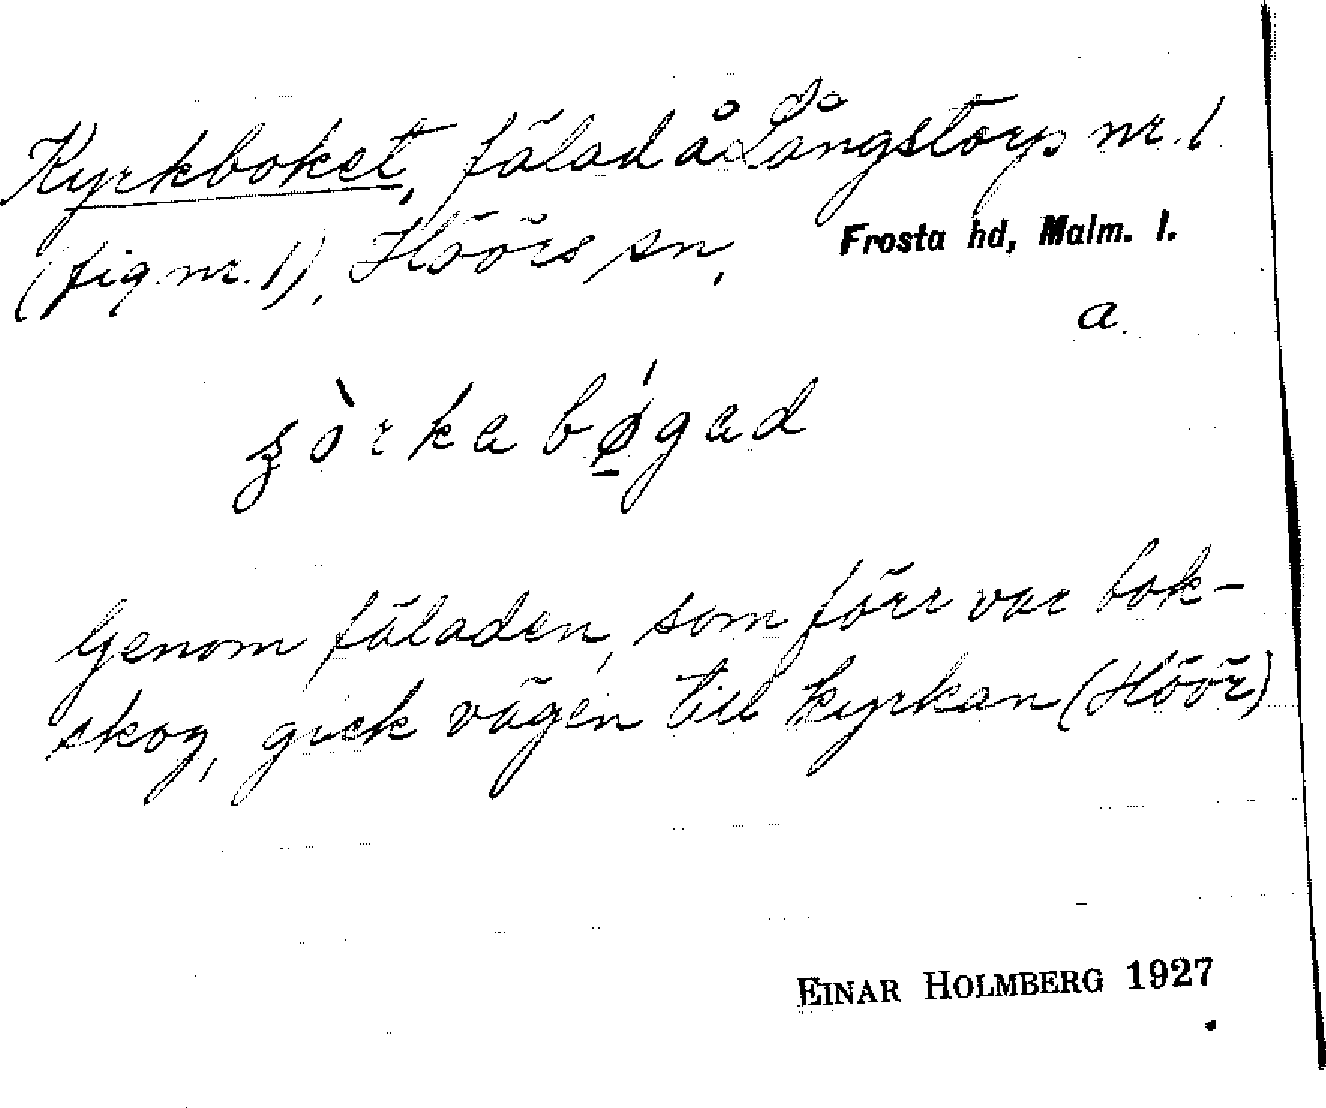 Kyrkboket, fälad å Långstorp nr. 1
(fig. nr. 1), Höörs sn, Frosta hd, Malm. l.
a.
Genom fäladen, som förr var bok-
skog, gick vägen till kyrkan (Höör)
EINAR HOLMBERG 1927